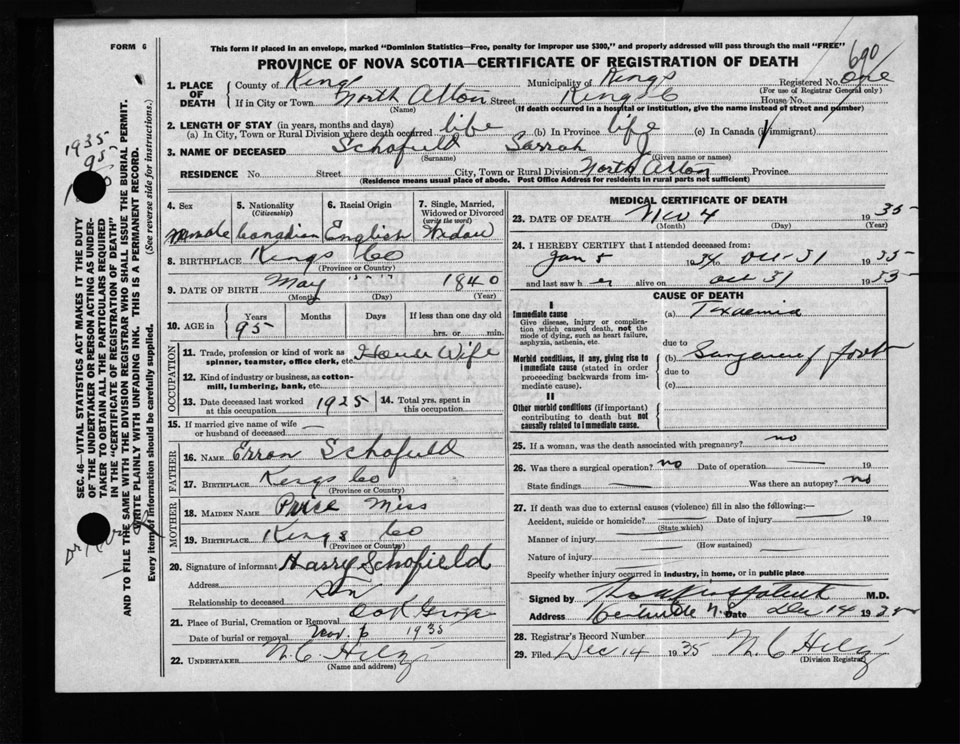 FORM 6
This form if placed in an envelope, marked "Dominion Statistics—Free, penalty for improper use $300," and properly addressed will pass through the mail "FREE"
690
PROVINCE OF NOVA SCOTIA—CERTIFICATE OF REGISTRATION OF DEATH
1. PLACE OF DEATH County of Kings Municipality of Kings Registered No. one
(For use of Registrar General only)
If in City or Town North Alton Street Kings Co House No.
(Name) (If death occurred in a hospital or institution, give the name instead of street and number)
2. LENGTH OF STAY (in years, months and days)
(a) In City, Town or Rural Division where death occurred life (b) In Province life (c) In Canada (if immigrant)
3. NAME OF DECEASED Schofield Sarrah
(Surname) (Given name or names)
RESIDENCE No. Street City, Town or Rural Division North Alton Province
(Residence means usual place of abode. Post Office Address for residents in rural parts not sufficient)
1935
95
SEC. 46—VITAL STATISTICS ACT MAKES IT THE DUTY
OF THE UNDERTAKER OR PERSON ACTING AS UNDER-
TAKER TO OBTAIN ALL THE PARTICULARS REQUIRED
IN THE "CERTIFICATE OF REGISTRATION OF DEATH"
AND TO FILE THE SAME WITH THE DIVISION REGISTRAR WHO SHALL ISSUE THE BURIAL PERMIT.
WRITE PLAINLY WITH UNFADING INK. THIS IS A PERMANENT RECORD.
Every item of information should be carefully supplied. (See reverse side for instructions.)
4. Sex 5. Nationality (Citizenship) 6. Racial Origin 7. Single, Married, Widowed or Divorced (write the word)
Canadian English Widow
8. BIRTHPLACE Kings Co
(Province or Country)
9. DATE OF BIRTH May 1840
(Month) (Day) (Year)
10. AGE in Years Months Days If less than one day old
95 hrs. or min.
OCCUPATION
11. Trade, profession or kind of work as spinner, teamster, office clerk, etc. House Wife
12. Kind of industry or business, as cotton-mill, lumbering, bank, etc.
13. Date deceased last worked at this occupation 1925 14. Total yrs. spent in this occupation
15. If married give name of wife or husband of deceased
FATHER
16. NAME Erron Schofield
17. BIRTHPLACE Kings Co
(Province or Country)
MOTHER
18. MAIDEN NAME Price Miss
19. BIRTHPLACE Kings Co
(Province or Country)
20. Signature of informant Harry Schofield
Address
Relationship to deceased Son
21. Place of Burial, Cremation or Removal
Date of burial or removal Nov. 6 1935
22. UNDERTAKER
(Name and address)
MEDICAL CERTIFICATE OF DEATH
23. DATE OF DEATH Nov 4 1935
(Month) (Day) (Year)
24. I HEREBY CERTIFY that I attended deceased from:
Jan 1934 to Oct 31 1935
and last saw her alive on Oct 31 1935
CAUSE OF DEATH
I
Immediate cause
Give disease, injury or complication which caused death, not the mode of dying, such as heart failure, asphyxia, asthenia, etc.
(a) Toxaemia
due to
Morbid conditions, if any, giving rise to immediate cause (stated in order proceeding backwards from immediate cause).
(b) Gangrene of foot
due to
(c)
II
Other morbid conditions (if important) contributing to death but not causally related to immediate cause.
25. If a woman, was the death associated with pregnancy? no
26. Was there a surgical operation? no Date of operation 19
State findings Was there an autopsy? no
27. If death was due to external causes (violence) fill in also the following:—
Accident, suicide or homicide? Date of injury 19
(State which)
Manner of injury
(How sustained)
Nature of injury
Specify whether injury occurred in industry, in home, or in public place
Signed by M.D.
Address Date Dec 14 19
28. Registrar's Record Number
29. Filed Dec 14 1935
(Division Registrar)